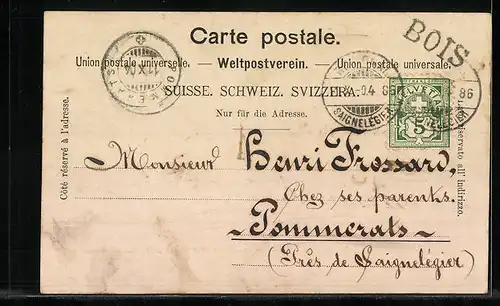 Carte postale.
BOIS
Union postale universelle. — Weltpostverein. — Union postale universale.
SUISSE. SCHWEIZ. SVIZZERA.
Nur für die Adresse.
Côté réservé à l'adresse.
HELVETIA
5
SAIGNELÉGIER
86
Monsieur Henri Frossard,
Chez ses parents.
Pommerats
(Près de Saignelégier)
riservato all'indirizzo.